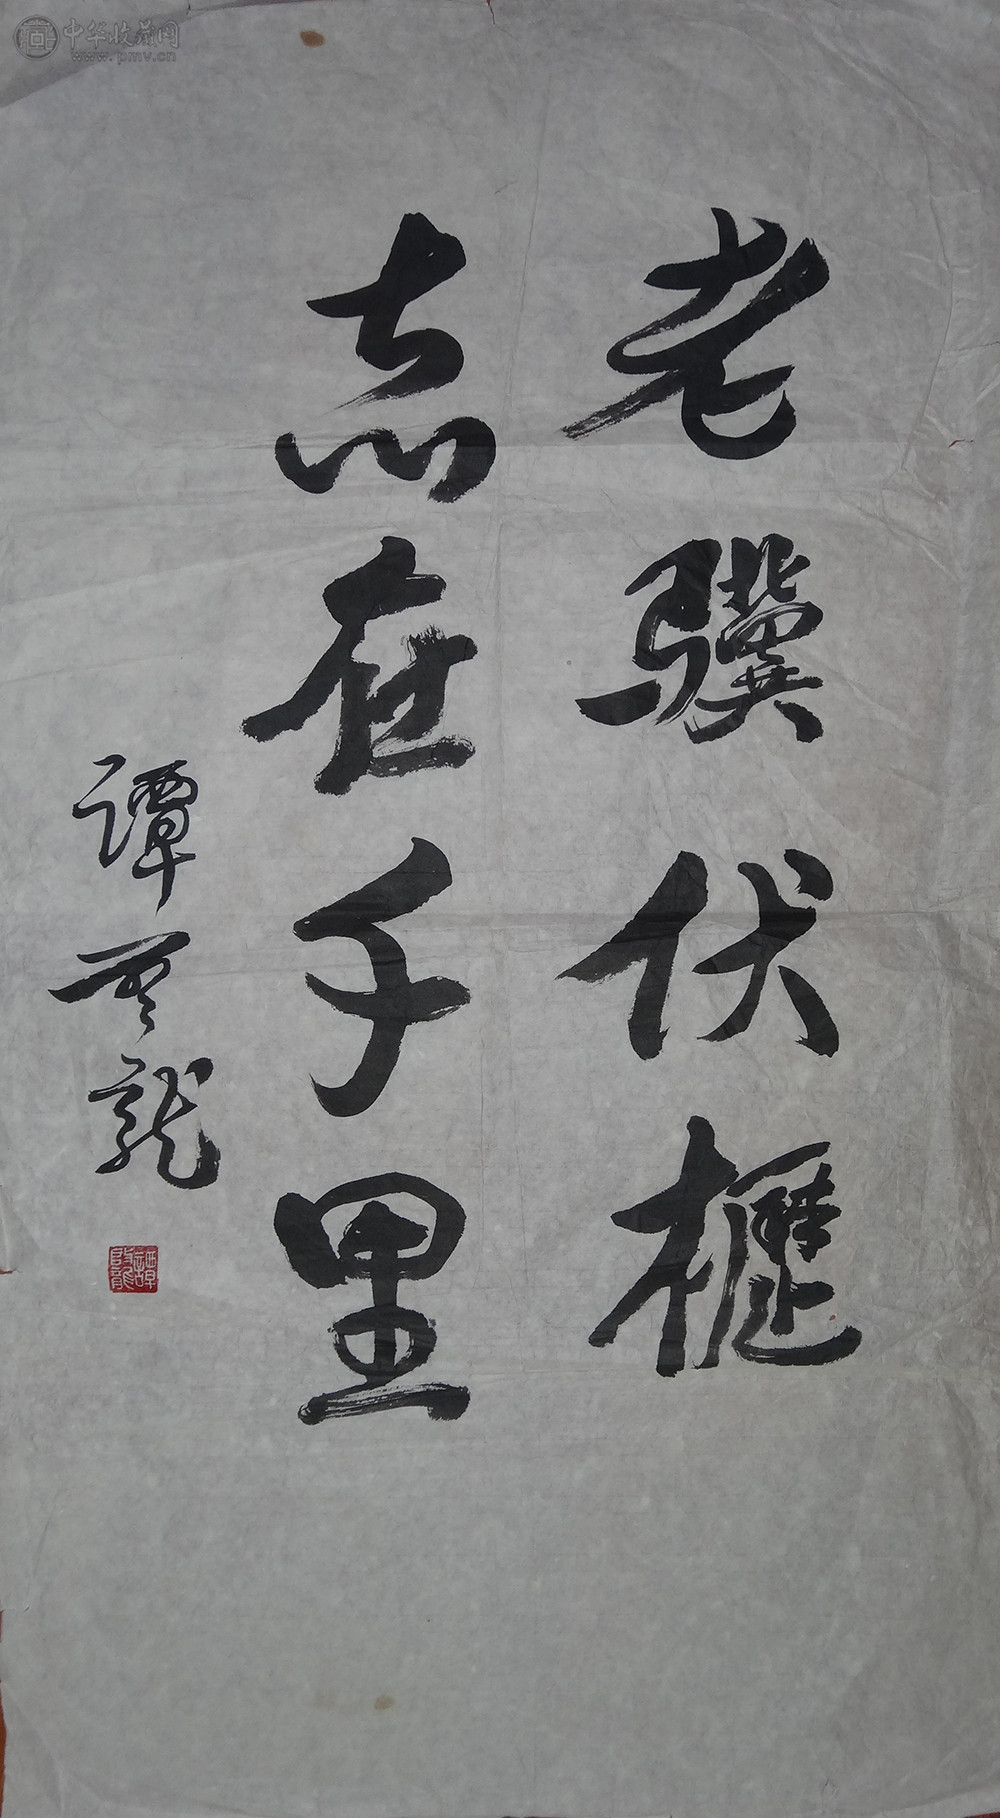 老驥伏櫪
志在千里
譚啓龍
譚啓龍
中华收藏网
www.pmv.cn